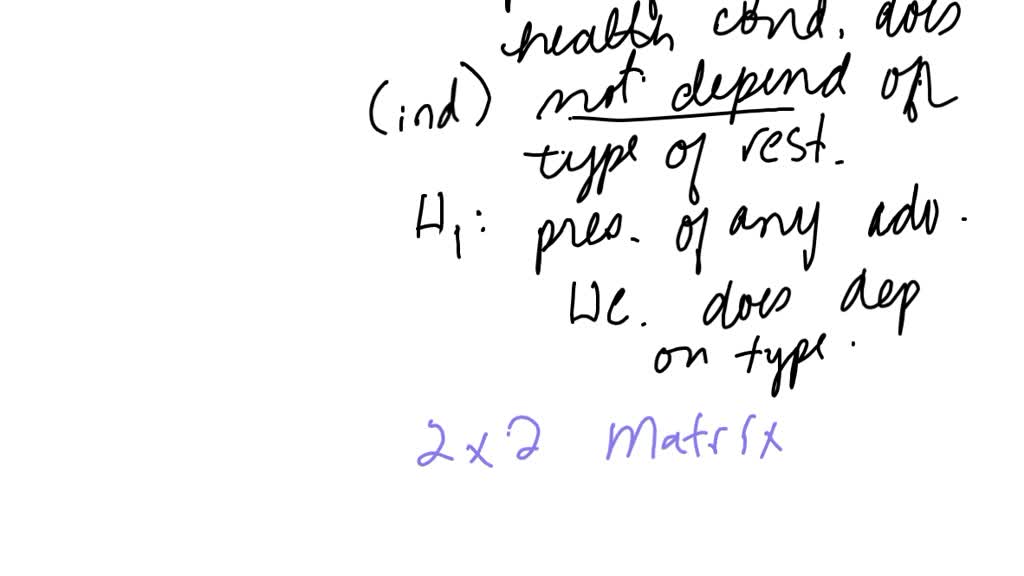 health cond. does
(ind) not depend on
type of rest.
H₁: pres. of any adv.
HC. does dep
on type.
2x2 Matrix